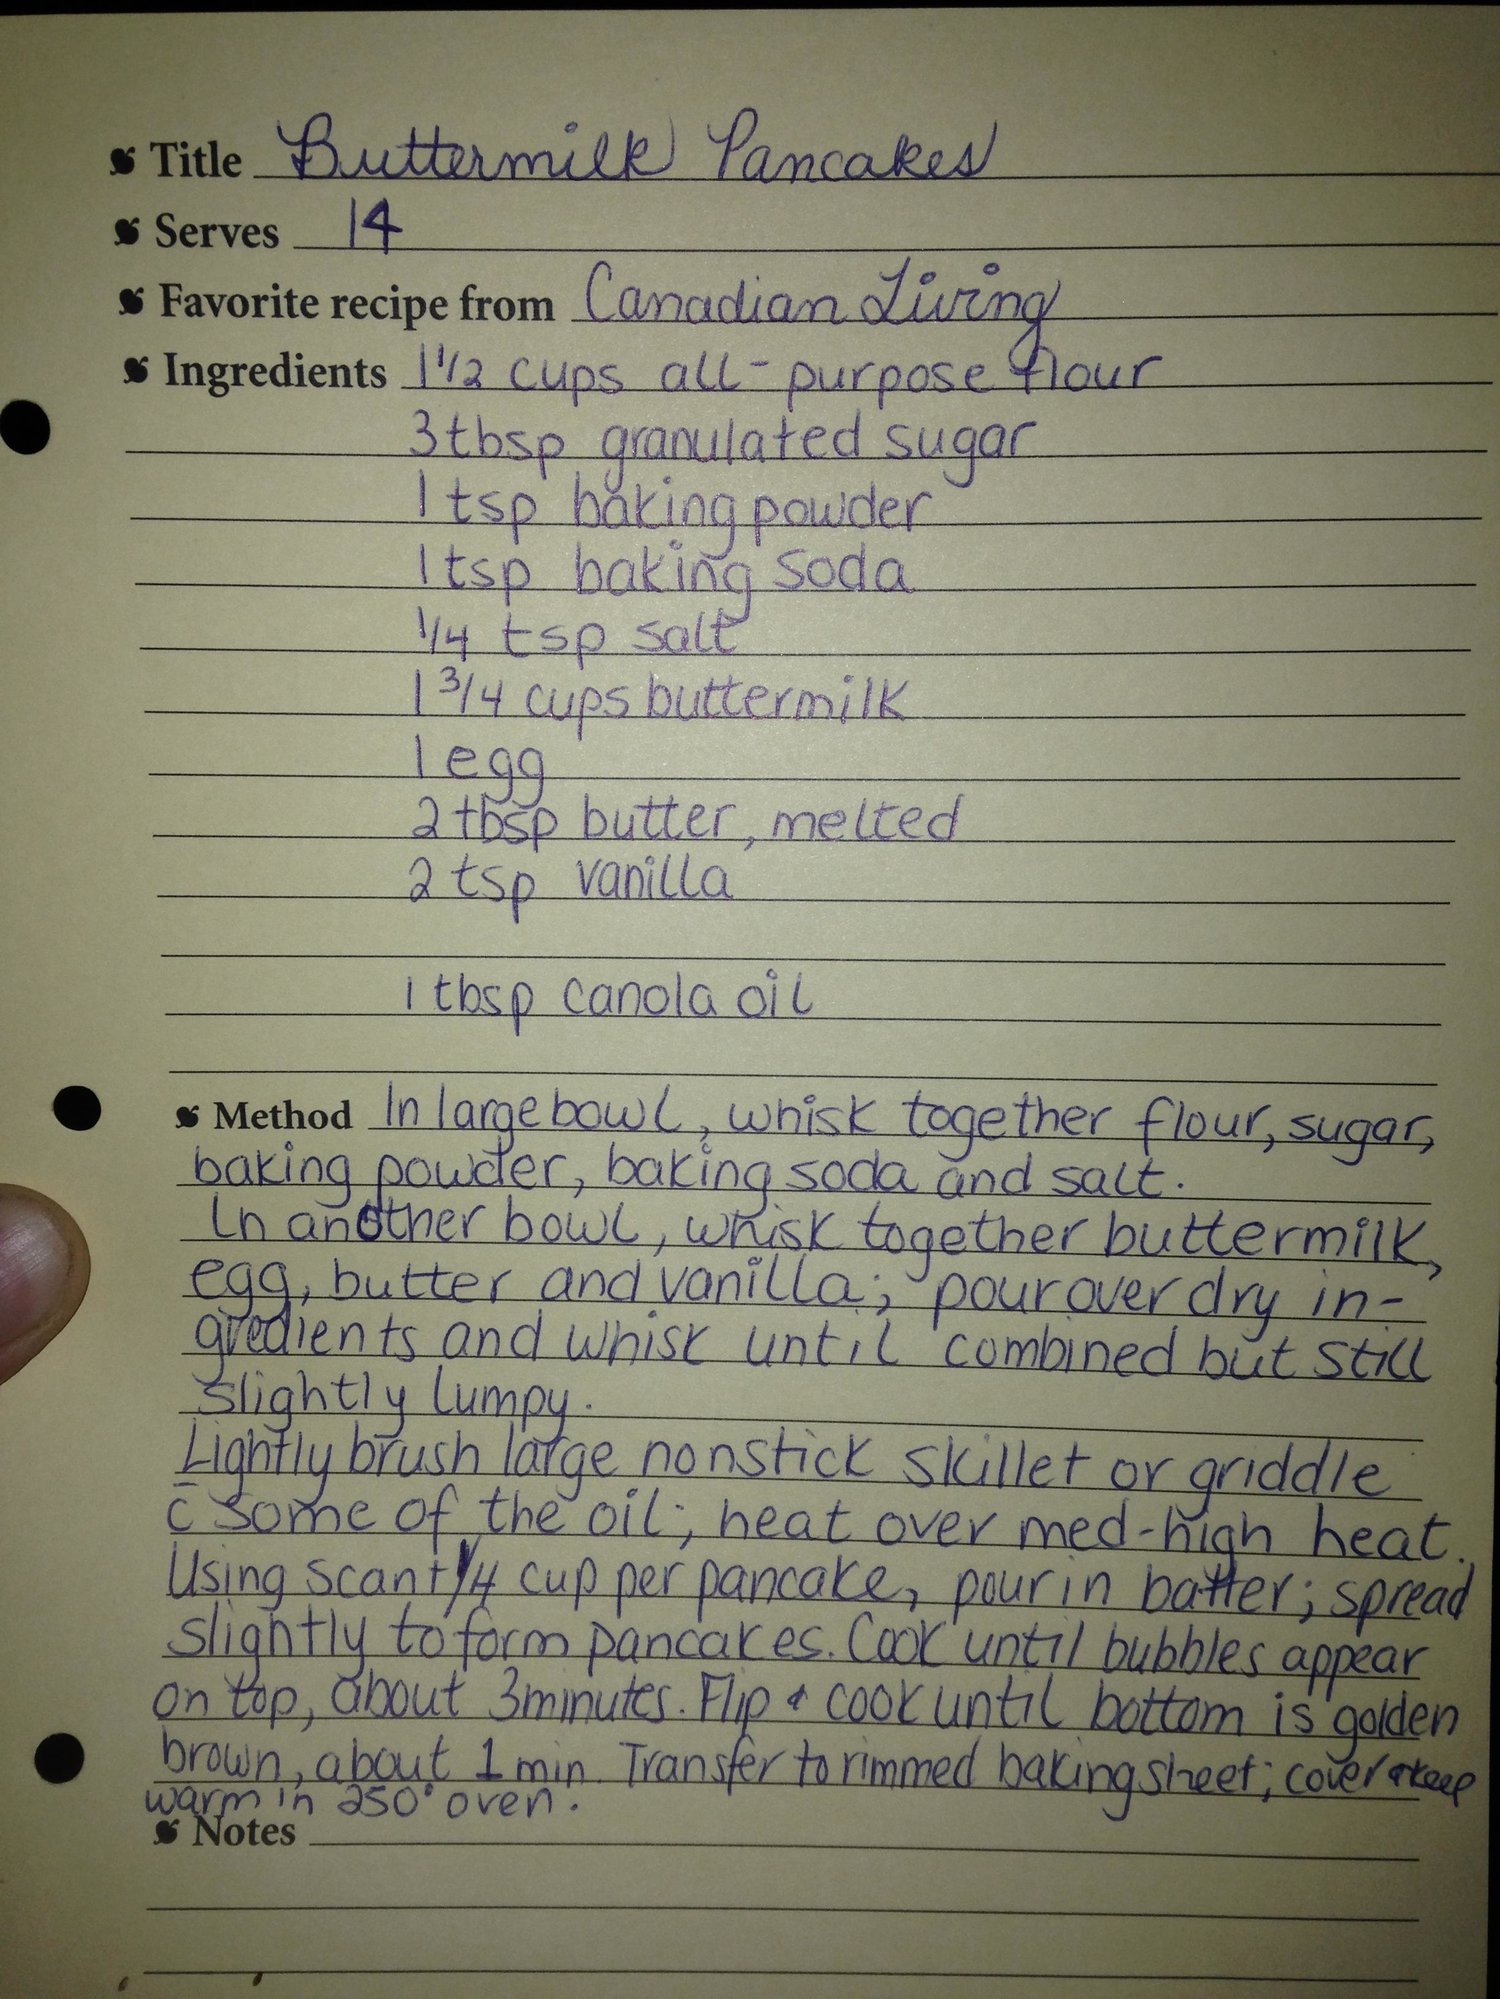 Title Buttermilk Pancakes
Serves 14
Favorite recipe from Canadian Living
Ingredients 1 1/2 cups all-purpose flour
3 tbsp granulated sugar
1 tsp baking powder
1 tsp baking soda
1/4 tsp salt
1 3/4 cups buttermilk
1 egg
2 tbsp butter, melted
2 tsp vanilla
1 tbsp canola oil
Method In large bowl, whisk together flour, sugar,
baking powder, baking soda and salt.
In another bowl, whisk together buttermilk,
egg, butter and vanilla; pour over dry in-
gredients and whisk until combined but still
slightly lumpy.
Lightly brush large nonstick skillet or griddle
c̄ some of the oil; heat over med-high heat.
Using scant 1/4 cup per pancake, pour in batter; spread
slightly to form pancakes. Cook until bubbles appear
on top, about 3 minutes. Flip & cook until bottom is golden
brown, about 1 min. Transfer to rimmed baking sheet; cover & keep
warm in 250° oven.
Notes